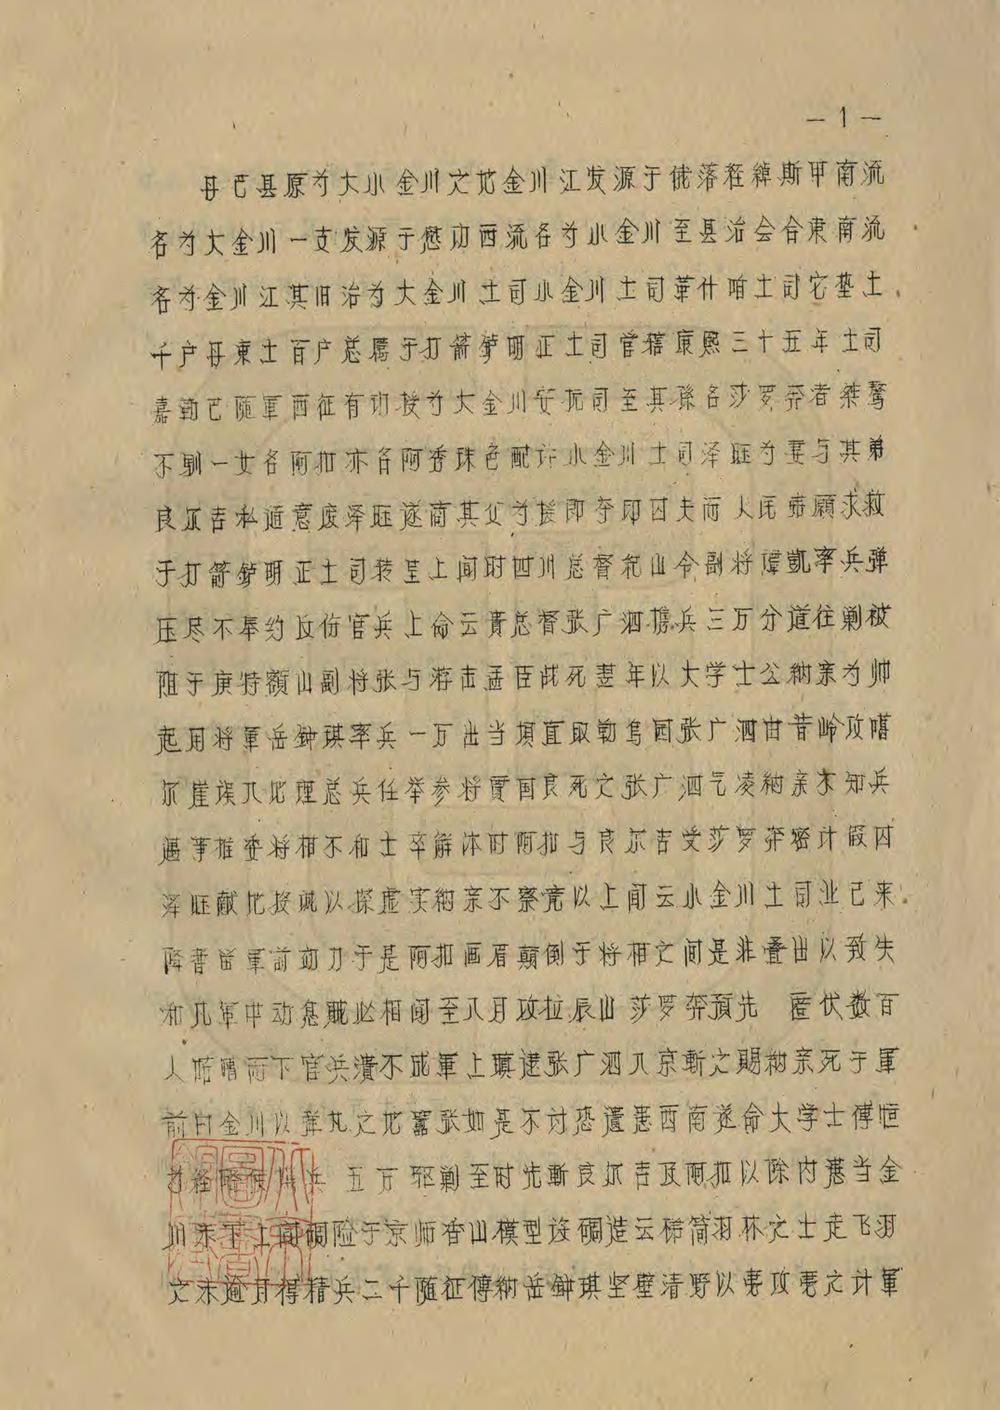 —1—
丹巴县原为大小金川之地金川江发源于俄落程绰斯甲南流
名为大金川一支发源于懋功西流名为小金川至县治会合东南流
名为金川江其旧治为大金川土司小金川土司革什咱土司它垫土
千户丹东土百户总属于打箭炉明正土司管辖康熙三十五年土司
嘉勒巴随军西征有功授为大金川安抚司至其孙名莎罗奔者桀骜
不驯一女名阿扣亦名阿秀珠色配许小金川土司泽旺为妻与其弟
良尔吉私通意废泽旺遂商其父为援即夺印囚夫而人民弗愿求救
于打箭炉明正土司转呈上闻时四川总督纪山令副将璋凯率兵弹
压尽不奉约反伤官兵上命云贵总督张广泗携兵三万分道往剿被
阻于庚特额山副将张与游击孟臣战死翌年以大学士公纳亲为帅
起用将军岳钟琪率兵一万出当坝直取勒乌围张广泗由昔岭攻噶
尔崖误入地理总兵任举参将贾国良死之张广泗气凌纳亲不知兵
遇事推委将相不和士卒解体时阿扣与良尔吉受莎罗奔密计假囚
泽旺献地投诚以探虚实纳亲不察竟以上闻云小金川土司业已来
降著留军前効力于是阿扣画眉颠倒于将相之间是非叠出以致失
和凡军中动息贼必相闻至八月攻拉辰山莎罗奔预先 匿伏数百
人随哨而下官兵溃不成军上瞋逮张广泗入京斩之赐纳亲死于军
前曰金川以弹丸之地嚣张如是不讨恐遗患西南遂命大学士傅恒
为经略使 兵 五万 剿至时先斩良尔吉及阿扣以除内患当金
川未下上闻碉险于京师香山模型设碉造云梯简羽林之士走飞羽
之未逾月得精兵二千随征傅纳岳钟琪坚壁清野以 攻 之计军